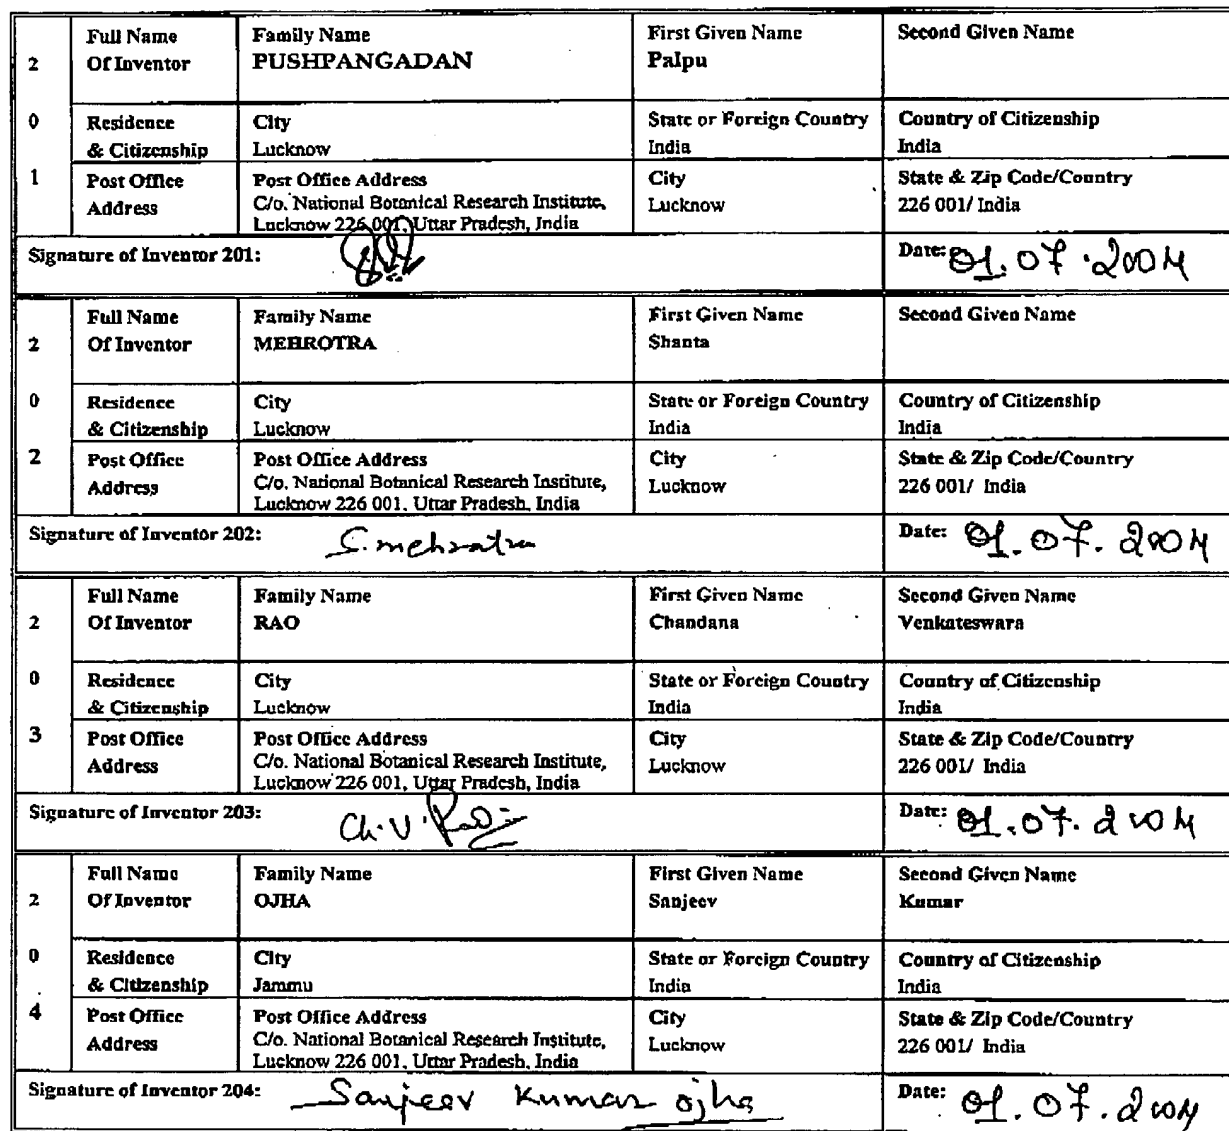 2 0 1
Full Name Of Inventor
Family Name
PUSHPANGADAN
First Given Name
Palpu
Second Given Name
Residence & Citizenship
City
Lucknow
State or Foreign Country
India
Country of Citizenship
India
Post Office Address
Post Office Address
C/o. National Botanical Research Institute,
Lucknow 226 001, Uttar Pradesh, India
City
Lucknow
State & Zip Code/Country
226 001/ India
Signature of Inventor 201:
Date: 01.07.2004
2 0 2
Full Name Of Inventor
Family Name
MEHROTRA
First Given Name
Shanta
Second Given Name
Residence & Citizenship
City
Lucknow
State or Foreign Country
India
Country of Citizenship
India
Post Office Address
Post Office Address
C/o. National Botanical Research Institute,
Lucknow 226 001, Uttar Pradesh, India
City
Lucknow
State & Zip Code/Country
226 001/ India
Signature of Inventor 202: S. mehrotra
Date: 01.07.2004
2 0 3
Full Name Of Inventor
Family Name
RAO
First Given Name
Chandana
Second Given Name
Venkateswara
Residence & Citizenship
City
Lucknow
State or Foreign Country
India
Country of Citizenship
India
Post Office Address
Post Office Address
C/o. National Botanical Research Institute,
Lucknow 226 001, Uttar Pradesh, India
City
Lucknow
State & Zip Code/Country
226 001/ India
Signature of Inventor 203: Ch. V. Rao
Date: 01.07.2004
2 0 4
Full Name Of Inventor
Family Name
OJHA
First Given Name
Sanjeev
Second Given Name
Kumar
Residence & Citizenship
City
Jammu
State or Foreign Country
India
Country of Citizenship
India
Post Office Address
Post Office Address
C/o. National Botanical Research Institute,
Lucknow 226 001, Uttar Pradesh, India
City
Lucknow
State & Zip Code/Country
226 001/ India
Signature of Inventor 204: Sanjeev Kumar ojha
Date: 01.07.2004